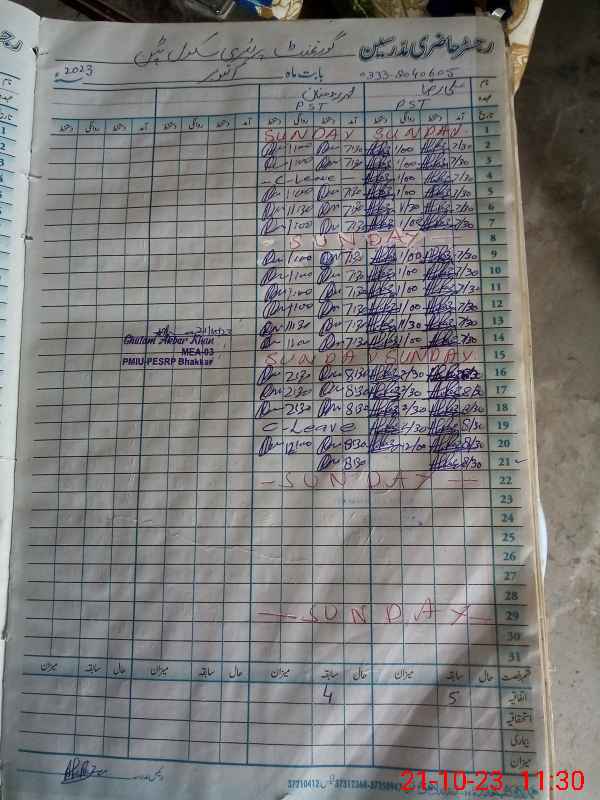 رجسٹر حاضری مدرسین گورنمنٹ پرائمری سکول
0333-8040605 بابت ماہ اکتوبر 2023ء
نام
عہدہ PST PST
تاریخ آمد دستخط روانگی دستخط آمد دستخط روانگی دستخط آمد دستخط روانگی دستخط آمد دستخط روانگی دستخط
1 SUNDAY SUNDAY
2 7/30 1/00 7/30 1/00
3 7/30 1/00 7/30 1/00
4 7/30 1/00 - C-Leave -
5 7/30 1/00 7/30 1/00
6 7/30 11/30 7/30 11/30
7 7/30 1/00 7/30 1/00
8 - SUNDAY
9 7/30 1/00 7/30 1/00
10 7/30 1/00 7/30 1/00
11 7/30 1/00 7/30 1/00
12 7/30 1/00 7/30 1/00
13 7/30 11/30 7/30 11/30
14 7/30 1/00 7/30 1/00
15 SUNDAY SUNDAY
16 8/30 2/30 8/30 2/30
17 8/30 2/30 8/30 2/30
18 8/30 2/30 8/30 2/30
19 8/30 2/30 C-Leave
20 8/30 12/00 8/30 12/00
21 8/30 8/30
22 - SUNDAY -
23
24
25
26
27
28
29 - SUNDAY -
30
31
Ghulam Akbar Khan
MEA-03
PMIU-PESRP Bhakkar
قسم رخصت حال سابقہ میزان حال سابقہ میزان حال سابقہ میزان حال سابقہ میزان
اتفاقیہ 5 4
استحقاقیہ
بیماری
میزان
37210412
21-10-23 11:30